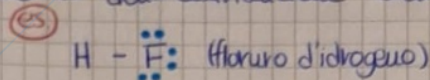 es.
H - F: (floruro d'idrogeno)